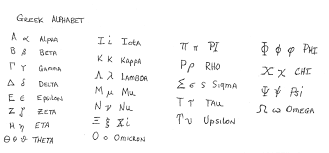 GREEK ALPHABET
Α α ALPHA
Β β BETA
Γ γ GAMMA
Δ δ DELTA
Ε ε EPSILON
Ζ ζ ZETA
Η η ETA
Θ θ ϑ THETA
Ι i IOTA
Κ κ KAPPA
Λ λ LAMBDA
Μ μ MU
Ν ν NU
Ξ ξ Xi
Ο ο OMICRON
Π π PI
Ρ ρ RHO
Σ σ ς SIGMA
Τ τ TAU
Υ υ UPSILON
Φ ϕ φ PHI
Χ χ CHI
Ψ ψ Psi
Ω ω OMEGA